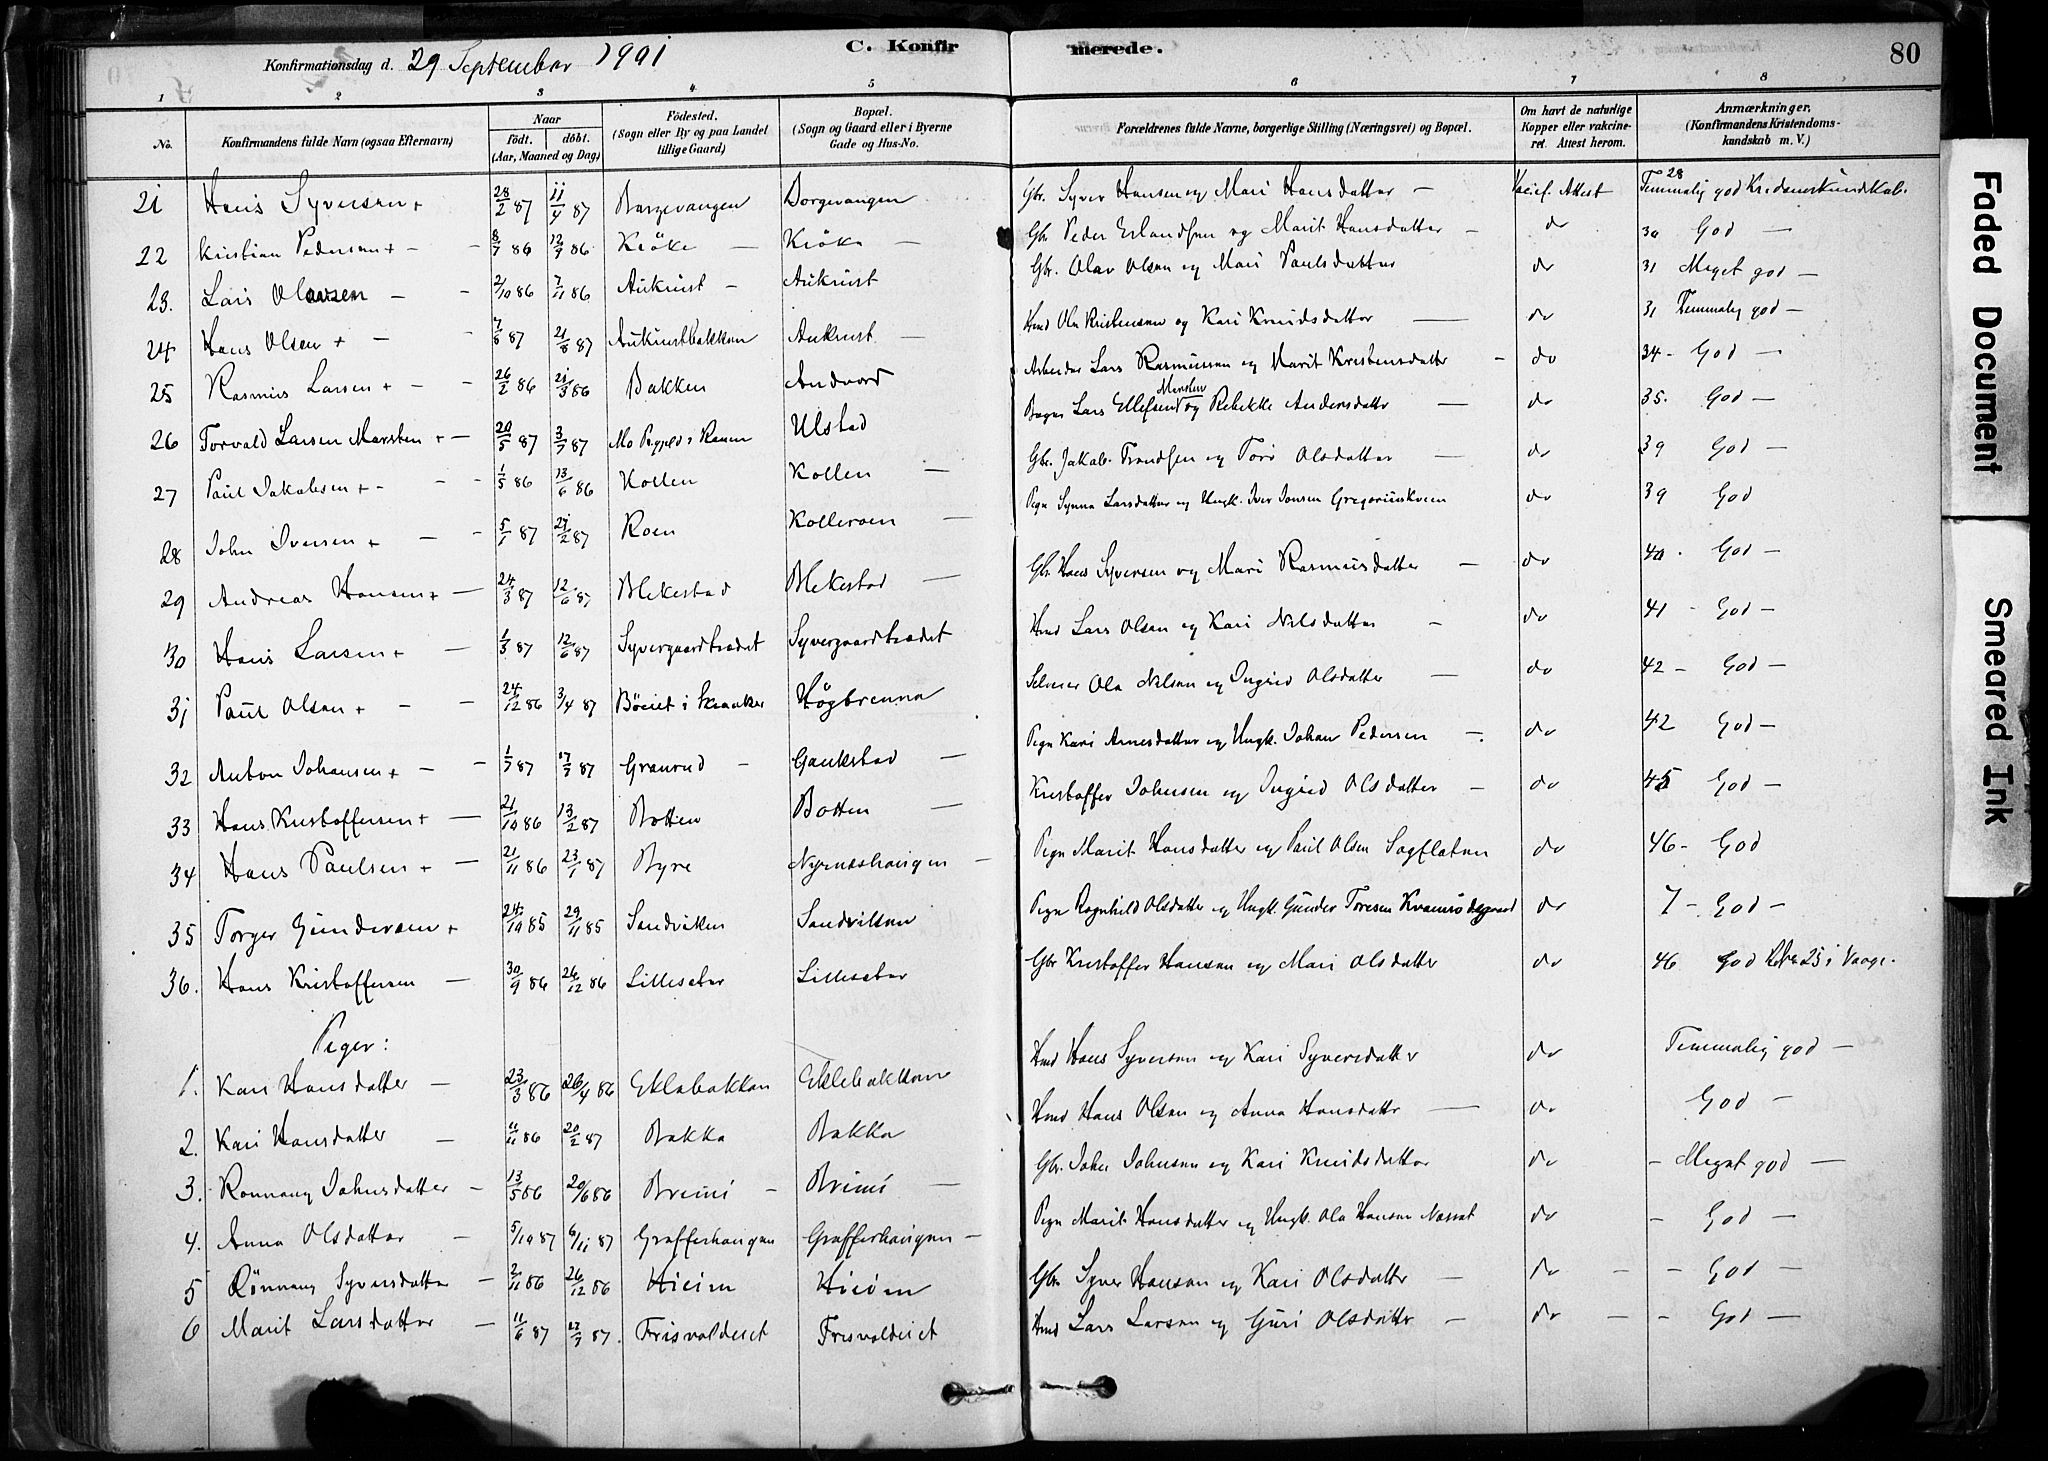 Konfirmationsdag d. 29 September 1901 C. Konfirmerede. 80
1 2 3 4 5 6 7 8
No. Konfirmandens fulde Navn (ogsaa Efternavn) Naar Födt. döbt. (Aar, Maaned og Dag) Födested. (Sogn eller By og paa Landet tillige Gaard) Bopæl. (Sogn og Gaard eller i Byerne Gade og Hus-No. Forældrenes fulde Navne, borgerlige Stilling (Næringsvei) og Bopæl. Om havt de naturlige Kopper eller vakcineret. Attest herom. Anmærkninger. (Konfirmandens Kristendomskundskab m. V.)
21 Hans Syversen + 28/2 87 11/4 87 Borgevangen Borgevangen Gbr. Syver Hansen og Mari Hansdatter — Attest 28 Temmelig god
22 Kristian Pedersen + - - 8/7 86 12/9 86 Kröke — Kröke — Gbr Peder Erlandsen og Marit Hansdatter - do 30 God —
23. Lars Olavsen — - 2/10 86 7/11 86 Aukrust - Aukrust Gbr. Olav Olsen og Mari Paulsdatter do 31 Meget god —
24 Hans Olsen + — - 7/8 87 21/8 87 Aukrustbakken Aukrust — Hmd Ola Kristensen og Kari Knudsdatter — do 31 Temmelig god —
25 Rasmus Larsen + - - 26/2 86 21/3 86 Bakken Andvord Arbeider Lars Rasmussen og Marit Kristensdatter - do 34 - God —
26 Torvald Larsen Marsten + — 20/5 87 3/7 87 Mo Ulstad Lars Ellefsen Marsten og Rebekke Andersdatter — do 35. God —
27 Paul Jakobsen + - - - 1/5 86 13/6 86 Kollen Kollen — Gbr. Jakob Trondsen og Toro Olsdatter — do 39 God —
28 John Iversen + - - 5/1 87 27/2 87 Roen Kolleroen — Pige Synna Larsdatter og Ungk. Iver Jonsen Gregoriuskveen do 39 God
29 Andreas Hansen + — 24/3 87 12/6 87 Blekestad Blekestad — Gbr. Hans Syversen og Mari Rasmusdatter — do 40. God —
30 Hans Larsen + — 1/3 87 12/6 87 Syvergaardtrædet Syvergaardtrædet Hmd Lars Olsen og Kari Nilsdatter - do 41 - God —
31 Paul Olsen + - - 24/12 86 3/4 87 Böeiet i Skiaaker Högbrenna Selveier Ola Nilsen og Ingrid Olsdatter — do 42 - God —
32 Anton Johansen + - - 1/7 87 17/7 87 Granrud - Gaukstad — Pige Kari Arnesdatter og Ungk. Johan Pedersen —. do 42 God —
33 Hans Kristoffersen + — 21/10 86 13/2 87 Botten Botten — Kristoffer Johnsen og Ingrid Olsdatter - do 45 God —
34 Hans Paulsen + — 21/11 86 23/1 87 Byre Nyrnæshaugen — Pige Marit Hansdatter og Paul Olsen Sagflaten do 46 - God
35 Torger Gundersen + 24/10 85 29/11 85 Sandviken Sandviken Pige Ragnhild Olsdatter og Ungk. Gunder Toresen do 7 - God —
36. Hans Kristoffersen — 30/9 86 26/12 86 Lillesæter Lillesæter Gbr Kristoffer Hansen og Mari Olsdatter do 46 God i Vaage.
Piger:
1. Kari Hansdatter — 23/3 86 26/4 86 Eklebakken Eklebakken Hmd Hans Syversen og Kari Syversdatter do Temmelig god —
2. Kari Hansdatter — 11/11 86 20/2 87 Bakke Bakke Hmd Hans Olsen og Anna Hansdatter — do God —
3. Rönnaug Johnsdatter - 13/5 86 20/6 86 Brimi - Brimi — Gbr. John Johnsen og Kari Knudsdatter do - Meget god —
4. Anna Olsdatter — 5/10 87 6/11 87 Grafferhaugen Grafferhaugen — Pige Marit Hansdatter og Ungk. Ola Hansen do - God —
5 Rönnaug Syversdatter — 2/11 86 26/12 86 Gbr. Syver Hansen og Kari Olsdatter — do - - God —
6 Marit Larsdatter — 11/6 87 17/7 87. Frisvoldeiet Frisvoldeiet Hmd Lars Larsen og Guri Olsdatter — do - - God —
Faded Document
Smeared Ink